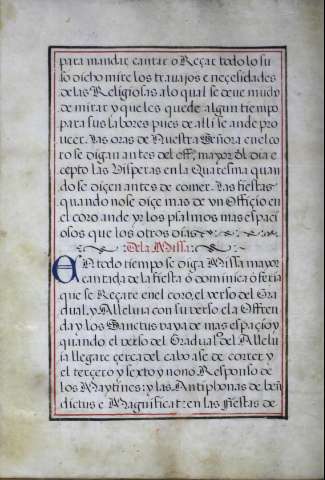 para mandar cantar o Reçar todo lo su
so dicho mire los trauajos e neçesidades
de las Religiosas alo qual se deue mucho
de mirar y que les quede algun tiempo
para sus labores pues de alli se an de pro
ueer. las oras de Nuestra Señora en el co
ro se digan antes del off. mayor. ð dia e
cepto las Visperas en la Quaresma quan
do se diçen antes de comer. las fiestas
quando no se diçe mas de vn Offiçio en
el coro an de yr los psalmos mas espaçi
osos que los otros dias
De la Missa
EN todo tiempo se diga Missa mayor
cantada de la fiesta o dominica o feria
que se Reçare en el coro. el verso del Gra
dual. y Alleluia con su verso e la Offren
da y los Sanctus vaya de mas espaçio y
quando el verso del Gradual. o del Allelu
ia llegare çerca del cabo a se de correr. y
el terçero y sexto y nono Responso de
los Maytines: y las Antiphonas de beñ
dictus e Magnificat: en las fiestas de